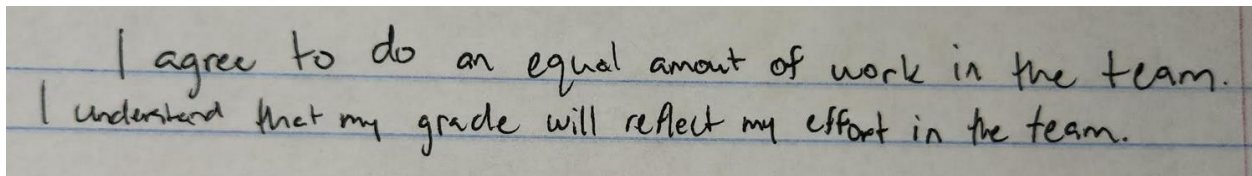 I agree to do an equal amout of work in the team.
I understand that my grade will reflect my effort in the team.